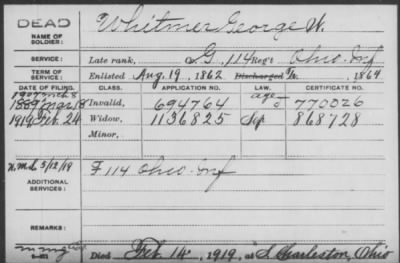 DEAD
Whitmer George W.
NAME OF SOLDIER:
SERVICE: Late rank, G, 114 Reg't Ohio Inf
TERM OF SERVICE: Enlisted Aug. 19, 1862 Discharged 1864
DATE OF FILING. CLASS. APPLICATION NO. LAW. CERTIFICATE NO.
1907 Mch 8 age
1889 Invalid, 694764 770026
1919 Feb. 24 Widow, 1136825 Sep 868728
Minor,
3/12/19
ADDITIONAL SERVICES: F 114 Ohio Inf
REMARKS:
Died Feb. 14, 1919, at S. Charleston, Ohio